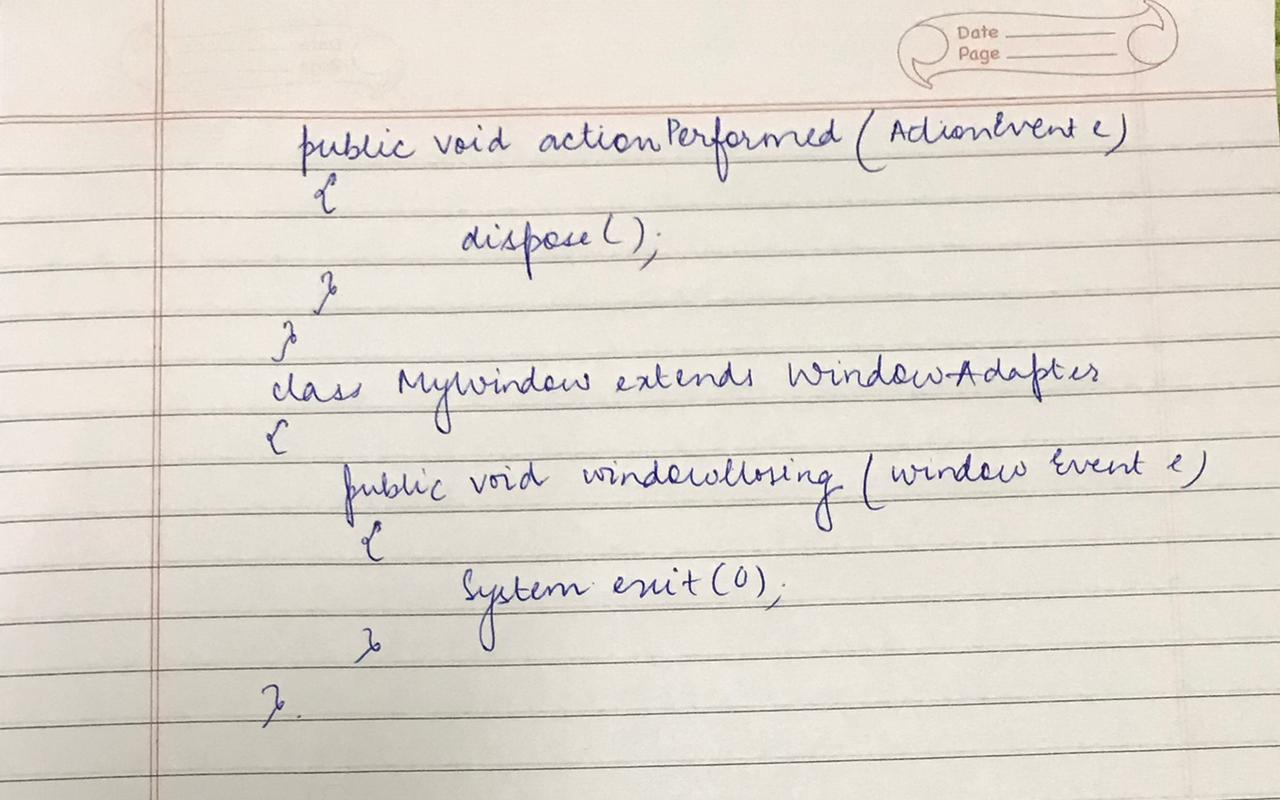 Date
Page
public void actionPerformed (ActionEvent e)
{
dispose();
}
}
class MyWindow extends WindowAdapter
{
public void windowClosing (window Event e)
{
System.exit(0);
}
}.